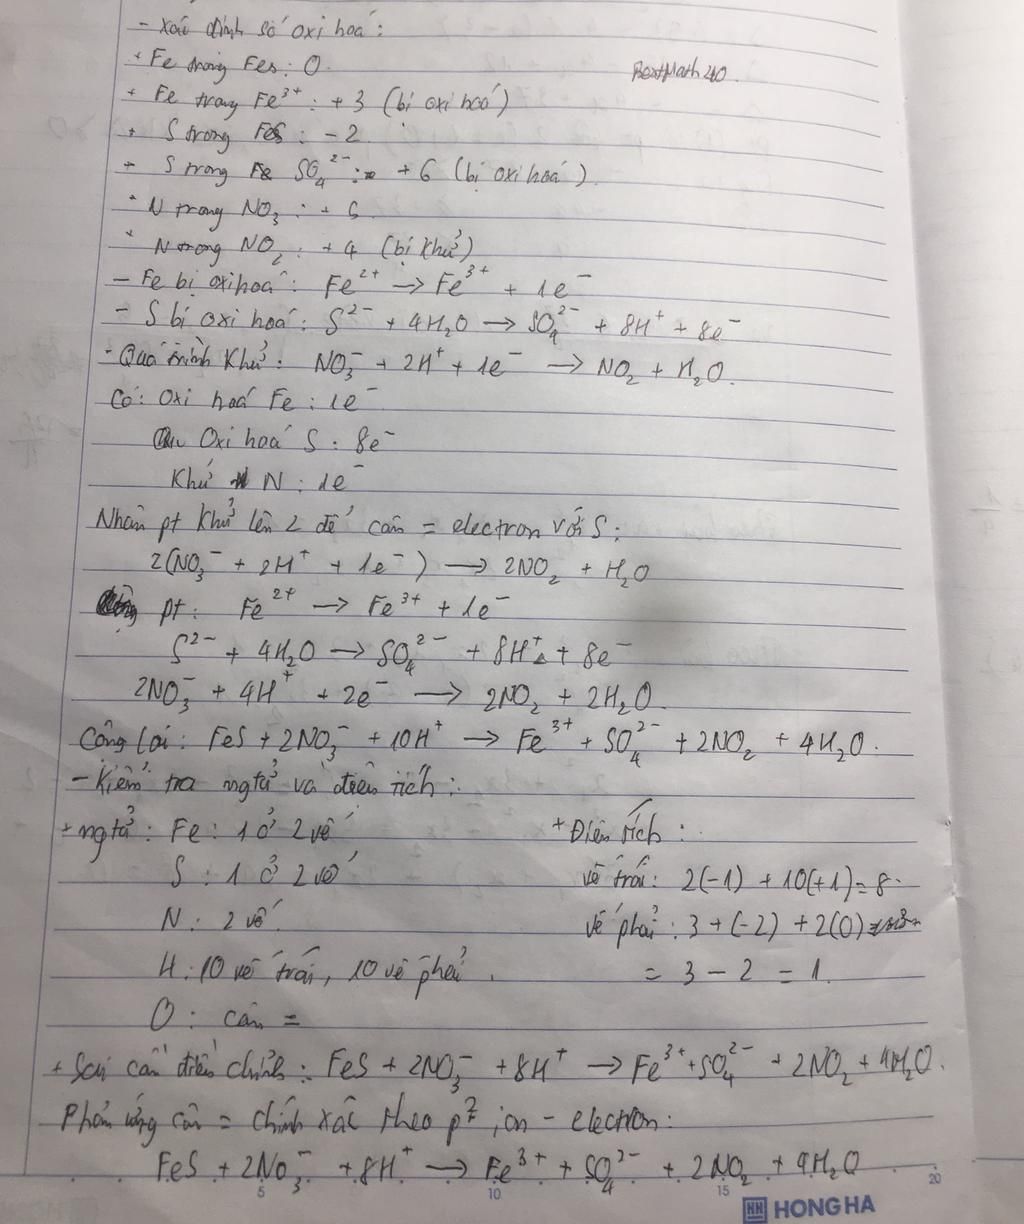 - Xác định số oxi hoá:
+ Fe trong FeS: 0.
BestMath 210.
+ Fe trong Fe³⁺: +3 (bị oxi hoá)
+ S trong FeS: -2
+ S trong SO₄²⁻: +6 (bị oxi hoá)
+ N trong NO₃:
+ N trong NO₂: +4 (bị khử)
- Fe bị oxi hoá: Fe²⁺ → Fe³⁺ + 1e⁻
- S bị oxi hoá: S²⁻ + 4H₂O → SO₄²⁻ + 8H⁺ + 8e⁻
- Quá trình khử: NO₃⁻ + 2H⁺ + 1e⁻ → NO₂ + H₂O.
Có: Oxi hoá Fe: 1e⁻
Oxi hoá S: 8e⁻
Khử N: 1e⁻
Nhân pt khử lên 2 để cân = electron với S:
2(NO₃⁻ + 2H⁺ + 1e⁻) → 2NO₂ + H₂O
pt: Fe²⁺ → Fe³⁺ + 1e⁻
S²⁻ + 4H₂O → SO₄²⁻ + 8H⁺ + 8e⁻
2NO₃⁻ + 4H⁺ + 2e⁻ → 2NO₂ + 2H₂O.
Cộng lại: FeS + 2NO₃⁻ + 10H⁺ → Fe³⁺ + SO₄²⁻ + 2NO₂ + 4H₂O.
- Kiểm tra ngtử và điện tích:
+ ngtử: Fe: 1 ở 2 vế
S: 1 ở 2 vế
N: 2 vế
H: 10 vế trái, 10 vế phải.
O: cân =
+ Điện tích:
vế trái: 2(-1) + 10(+1) = 8.
vế phải: 3 + (-2) + 2(0)
= 3 - 2 = 1.
+ Sai cần điều chỉnh: FeS + 2NO₃⁻ + 8H⁺ → Fe³⁺ + SO₄²⁻ + 2NO₂ + 4H₂O.
Phản ứng cân = chính xác theo p² ion - electron:
FeS + 2NO₃⁻ + 8H⁺ → Fe³⁺ + SO₄²⁻ + 2NO₂ + 4H₂O
5 10 15 20
HONG HA